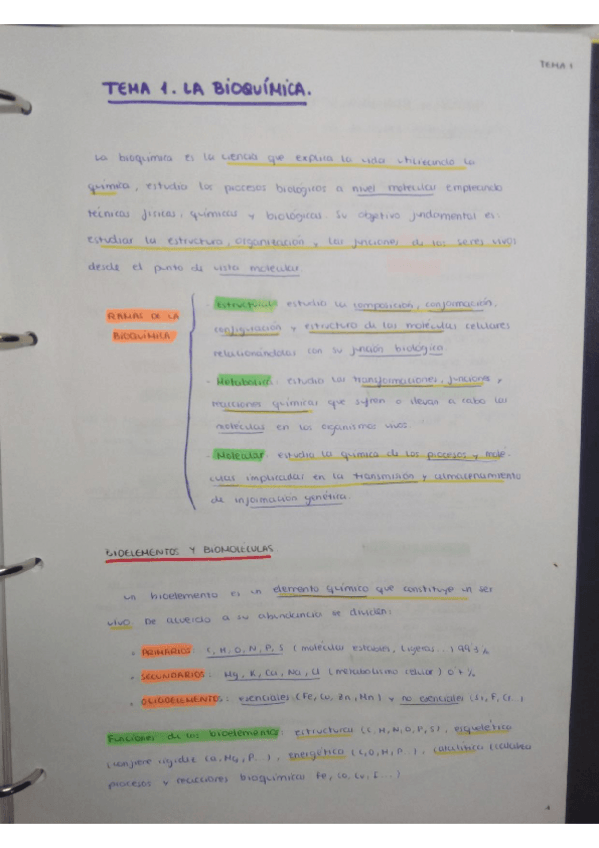 TEMA 1
TEMA 1. LA BIOQUÍMICA.
La bioquímica es la ciencia que explica la vida utilizando la
química, estudia los procesos biológicos a nivel molecular empleando
técnicas físicas, químicas y biológicas. Su objetivo fundamental es:
estudiar la estructura, organización y las funciones de los seres vivos
desde el punto de vista molecular
RAMAS DE LA
BIOQUÍMICA
· Estructural: estudia la composición, conformación,
configuración y estructura de las moléculas celulares
relacionándolas con su función biológica.
· Metabólica: estudia las transformaciones, funciones,
reacciones químicas que sufren o llevan a cabo las
moléculas en los organismos vivos.
· Molecular: estudia la química de los procesos y molé-
culas implicadas en la transmisión y almacenamiento
de información genética.
BIOELEMENTOS Y BIOMOLÉCULAS
Un bioelemento es un elemento químico que constituye un ser
vivo. De acuerdo a su abundancia se dividen:
· PRIMARIOS: C, H, O, N, P, S (moléculas esenciales, ligeras...)
· SECUNDARIOS: Mg, K, Ca, Na, Cl (metabolismo celular)
· OLIGOELEMENTOS: esenciales (Fe, Cu, Zn, Mn) y no esenciales
Funciones de los bioelementos: estructural (C, H, N, O, P, S), esquelética
(confiere rigidez Ca, Mg, P...), energética (C, O, H, P...), catalítica (cataliza
procesos y reacciones bioquímicas Fe, Co, Cu, I...)